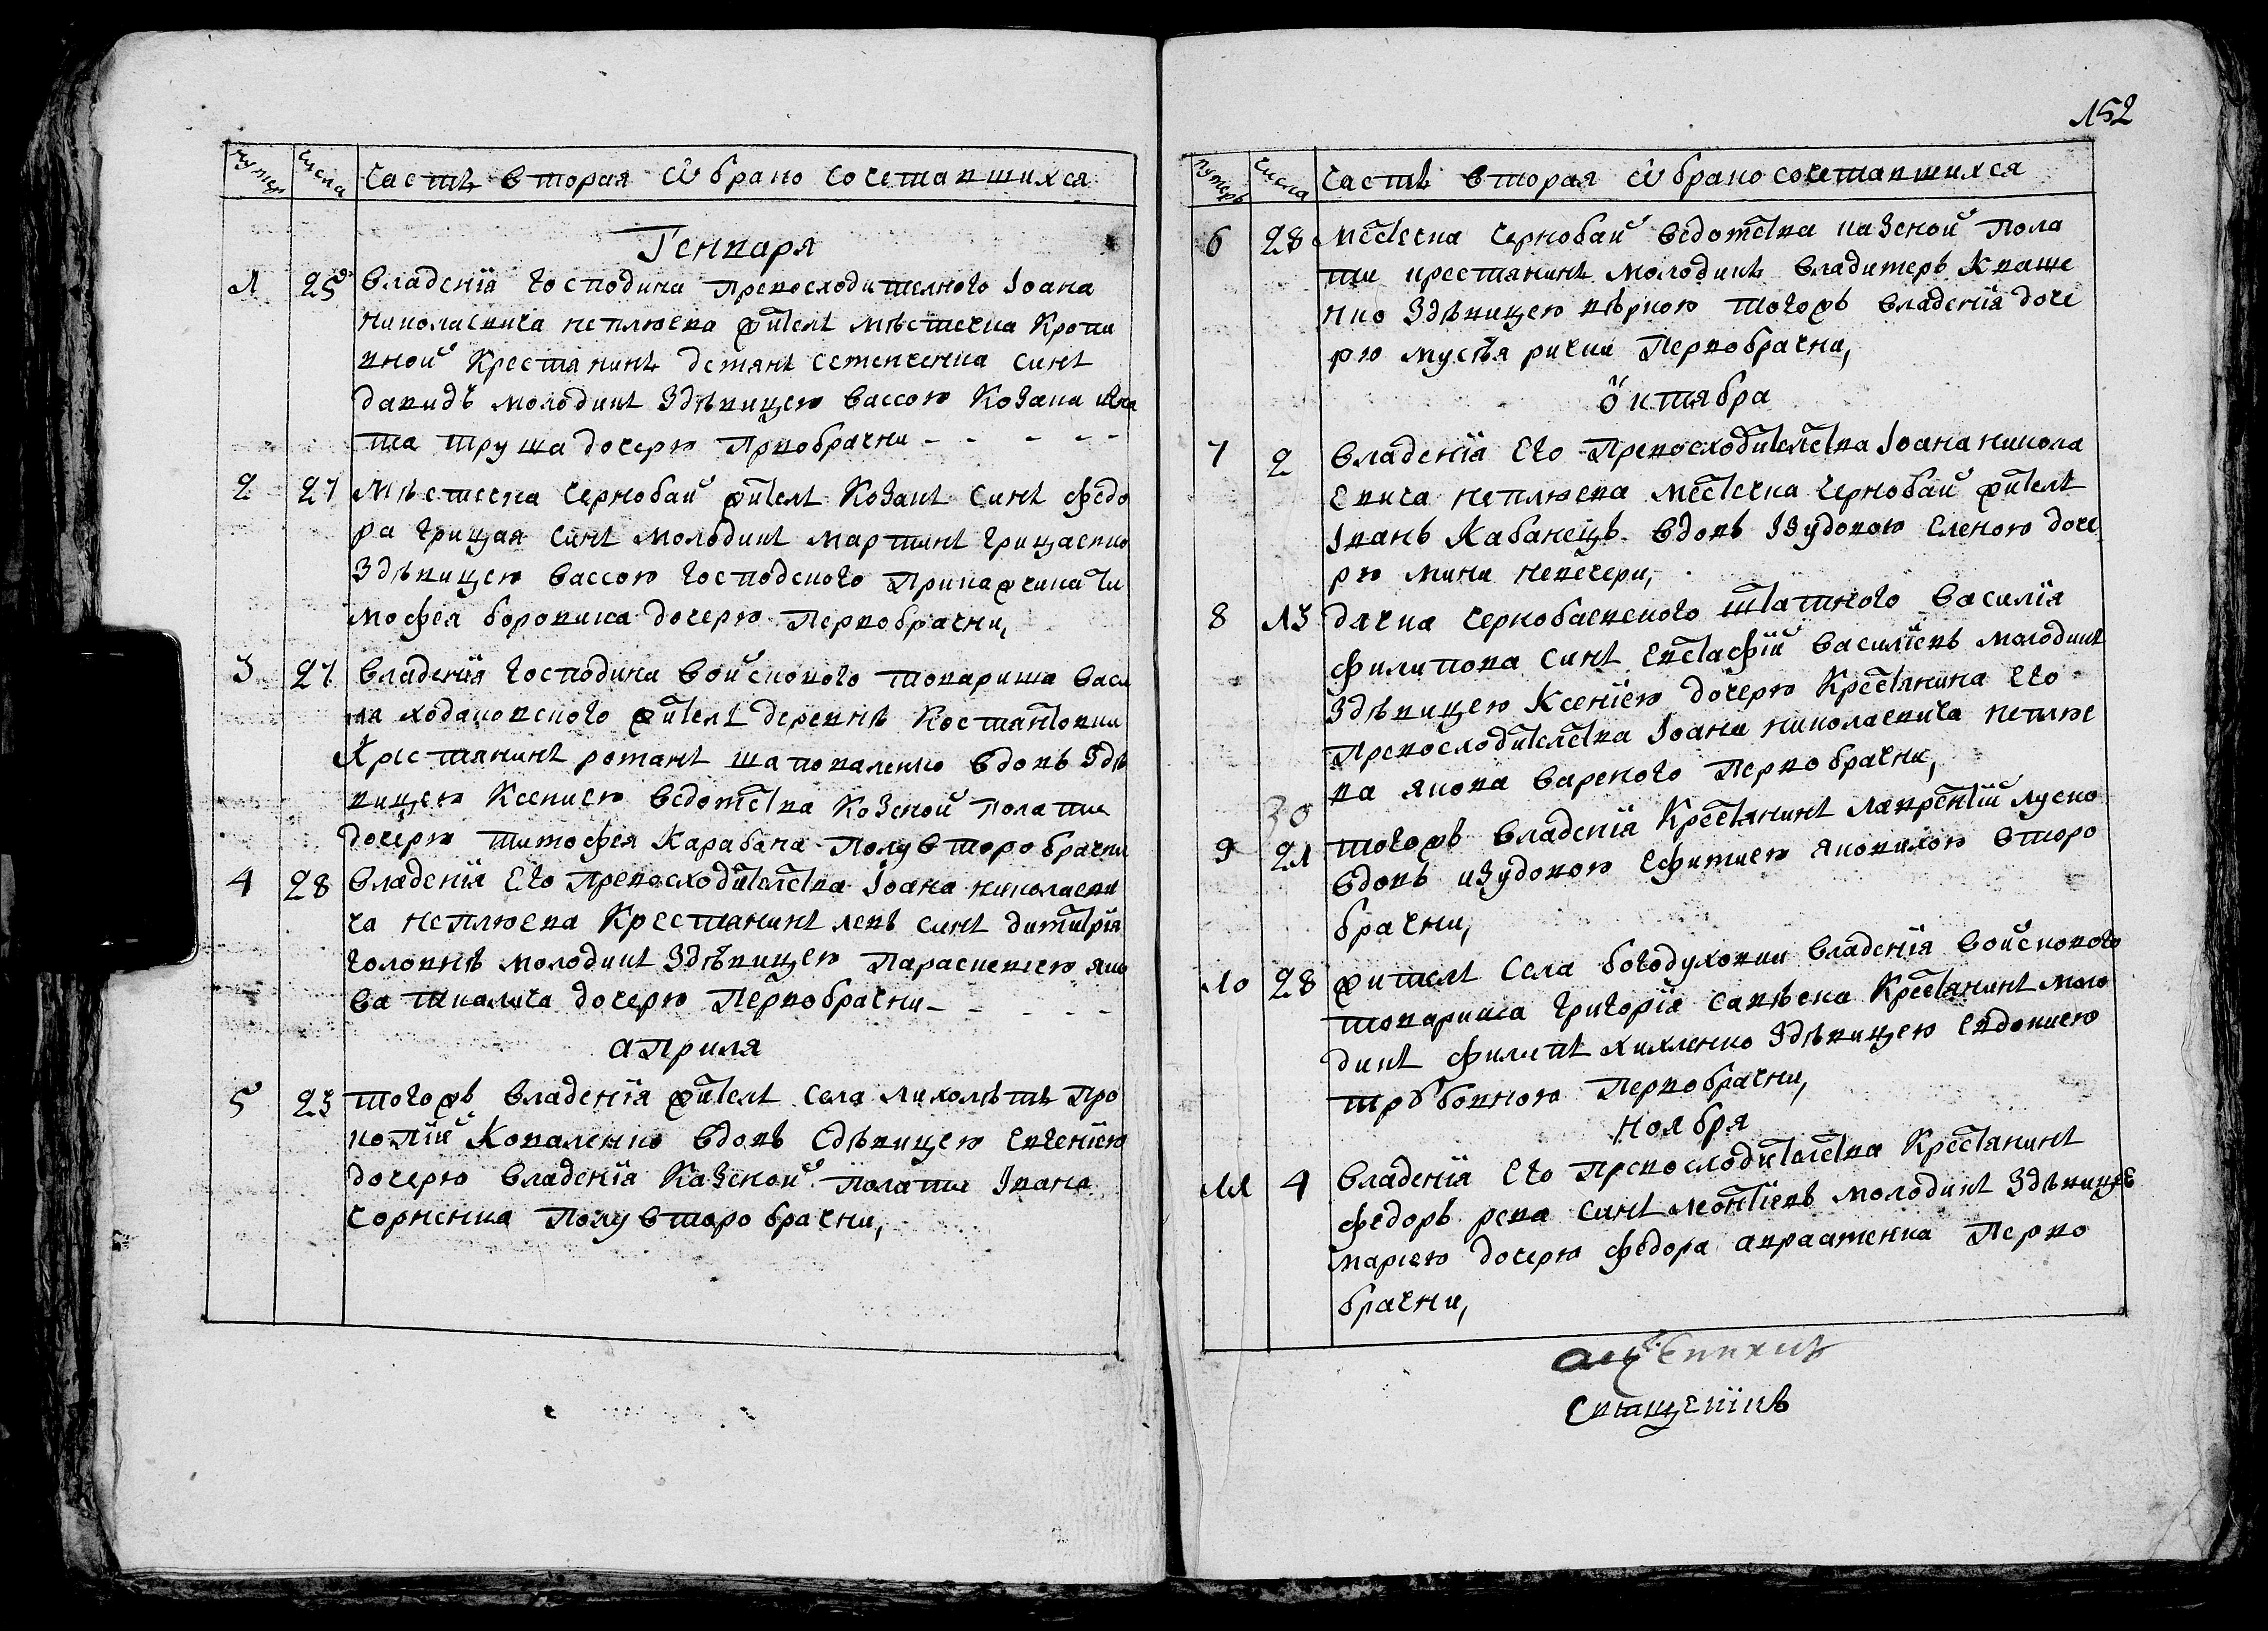 152
нумер числа часть вторая ѡ брако сочетавшихся
Генваря
1 25 владения господина превосходителного Iоана
николаевича неплюева жител мѣстечка кропи
вной крестянинъ демянъ семенченка синъ
давидъ молодикъ здѣвицею вассою козака игна
та труша дочерю првобрачни - - - - -
2 27 мѣстечка чернобай жител козакъ синъ федо
ра грицая синъ молодикъ мартинъ грицаенко
здѣвицею вассою господского прикажчика ти
мофея боровика дочерю первобрачни,
3 27 владения господина войскового товариша васи
ля ходаковского жител деревнѣ костантовки
крестянинъ романъ шаповаленко вдовъ здѣ
вицею ксениею ведомства козеной полати
дочерю тимофея карабана полувторобрачни
4 28 владения его превосходителства Iоана николаеви
ча неплюева крестянинъ левъ синъ димитрия
головнѣ молодикъ здѣвицею параскевиею яко
ва ткалича дочерю первобрачни - - - -
априля
5 23 тогожъ владения жител села лихолѣтъ про
копий коваленко вдовъ сдѣвицею евгениею
дочерю владения казеной полати Iвана
сорненка полувторобрачни,
нумеръ числа часть вторая ѡ брако сочетавшихся
6 28 местечка чернобай ведомства казеной пола
ти крестянинъ молодикъ владимеръ кваше
нко здѣвицею вѣрною тогожъ владения доче
рю мусѣя рички первобрачни,
ѻктября
7 2 владения его превосходителства Iоана никола
евича неплюева местечка чернобай жител
Iванъ кабанецъ вдовъ Iзудовою еленою доче
рю мини невечери,
8 13 дячка чернобаевского штатного василия
филипова синъ евстафий василиевъ молодикъ
здѣвицею ксениею дочерю крестянина его
превосходителства Iоана николаевича неплюе
ва якова вареного первобрачни,
30
9 21 тогожъ владения крестянинъ лаврентий луско
вдовъ изудовою ефимиею яковихою второ
брачни,
10 28 жител села богодуховки владения войскового
товариша григория савѣска крестянинъ моло
дикъ филипъ хихленко здѣвицею евдокиею
первобрачни,
ноября
11 4 владения его превосходителства крестянинъ
федоръ рева синъ леонтиевъ молодикъ здѣвицею
мариею дочерю федора авраменка перво
брачни,
священикъ